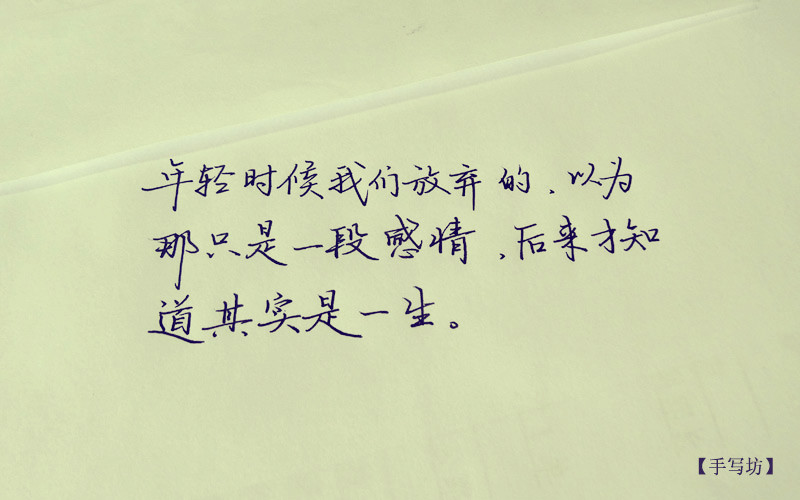 年轻时候我们放弃的，以为
那只是一段感情，后来才知
道其实是一生。
【手写坊】